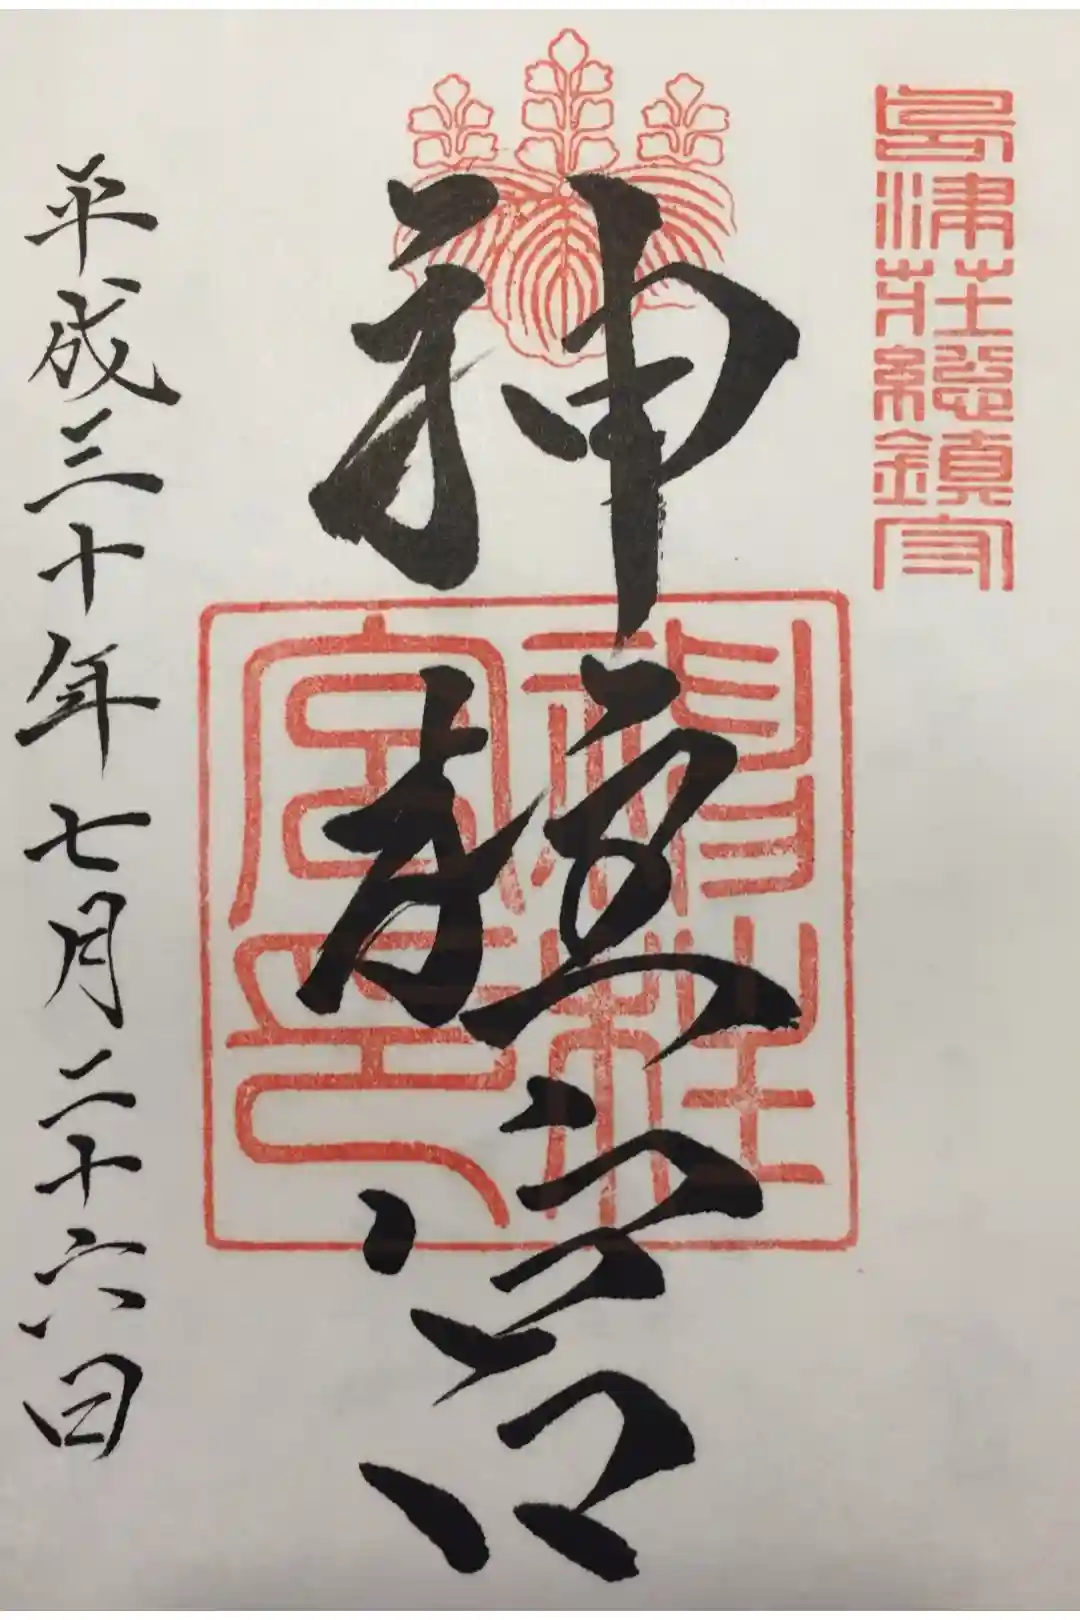 島津莊總鎮守
神柱宮
神柱宮印
平成三十年七月二十六日